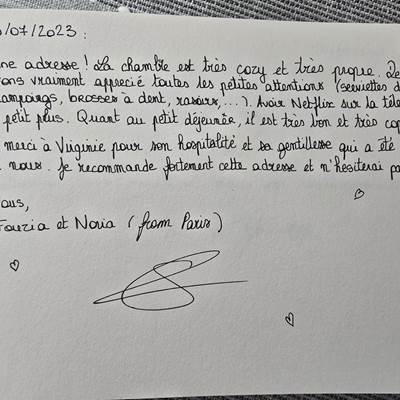 /07/2023 :
ne adresse ! La chambre est très cozy et très propre. De
ons vraiment apprecié toutes les petites attentions (serviettes d
ampoings, brosses à dent, rasoirs, ...). Avoir Netflix sur la télé
petit plus. Quant au petit déjeunée, il est très bon et très cop
merci à Virginie pour son hospitalité et sa gentillesse qui a été
nous. Je recommande fortement cette adresse et n'hésiterai pa
ous,
Fouzia et Nouria (from Paris)